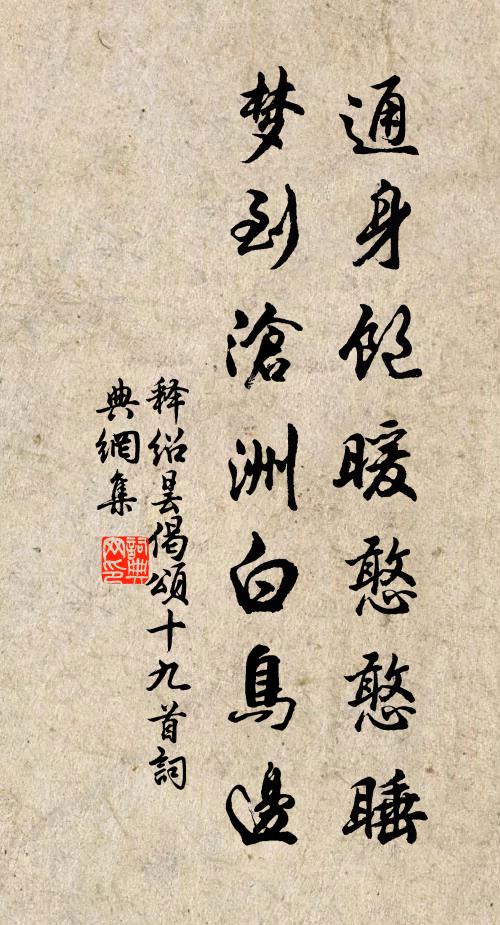 通身飽暖憨憨睡
梦到滄洲白鳥邊
释绍昙偈頌十九首詞
典網集
詞典网印